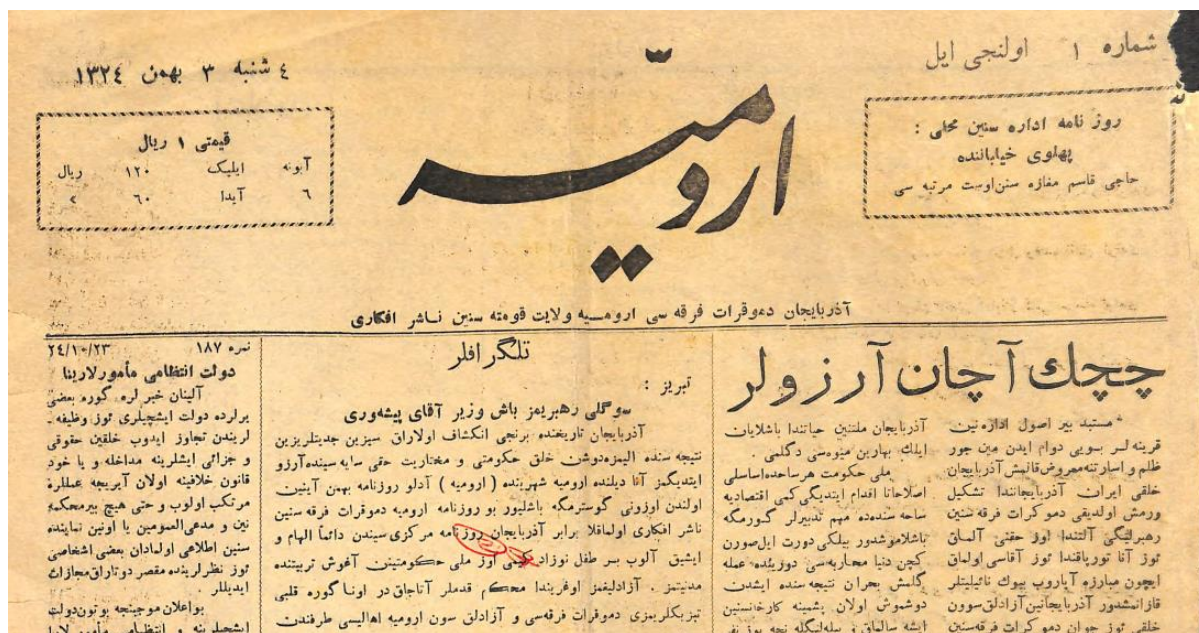 شماره ۱ اولنجی ایل
٤ شنبه ۳ بهمن ۱۳۲٤
ارومیّه
روز نامه اداره سنین محلی :
پهلوی خیاباننده
حاجی قاسم مغازه سنن اوست مرتبه سی
قیمتی ۱ ریال
آبونه ایلیک ۱۲۰ ریال
٦ آیدا ٦۰ »
آذربایجان دموقرات فرقه سی ارومیه ولایت قومته سنین ناشر افکاری
چچك آچان آرزولر
مستبد بیر اصول اداره نین
قرینه لر بویی دوام ایدن مین جور
ظلم و اسارتنه معروض قالمش آذربایجان
خلقی ایران آذربایجانندا تشکیل
ورمش اولدیقی دموکرات فرقه سنین
رهبرلیگی آلتندا اوز حقنی آلماق
ئوز آنا تورپاقندا ئوز آقاسی اولماق
ایچون مبارزه آپاروب بیوك نائیلیتلر
قازانمشدور آذربایجانین آزادلق سوون
خلقی ئوز جوان دموکرات فرقه سنین
آذربایجان ملتنین حیاتندا باشلایان
ایلك بهارین میوه سی دگلمی .
ملی حکومت هر ساحده اساسلی
اصلاحاتا اقدام ایتدیگی کمی اقتصادیه
ساحه سنده ده مهم تدبیرلر گورمگه
باشلاموشدور بیلکی دورت ایل صورن
کچن دنیا محاربه سی دوزینده عمله
گلمش بحران نتیجه سنده ایشدن
دوشموش اولان پشمینه کارخانسنین
ایشه سالماق و بیله لیگله نچه یوز نفر
تلگرافلر
تبریز :
سوگلی رهبریمز باش وزیر آقای پیشه وری
آذربایجان تاریخنده برنجی انکشاف اولاراق سیزین جدیتلریزین
نتیجه سنده الیمزه دوشن خلق حکومتی و مختاریت حقی سایه سینده آرزو
ایتدیگمز آنا دیلنده ارومیه شهرینده ( ارومیه ) آدلو روزنامه بهمن آینین
اولندن اوزونی گوسترمگه باشلیور بو روزنامه ارومیه دموقرات فرقه سنین
ناشر افکاری اولماقلا برابر آذربایجان روزنامه مرکزی سیندن دائماً الهام و
ایشیق آلوب بر طفل نوزاد کیمی اوز ملی حکومتینن آغوش تربیتنده
مدنیتمز . آزادلیقمز اوغریندا محکم قدملر آتاجاق در اونا گوره قلبی
تبریکلریمزی دموقرات فرقه سی و آزادلق سون ارومیه اهالیسی طرفندن
نمره ۱۸۷ ۲٤/۱۰/۲۳
دولت انتظامی مأمورلارینا
آلینان خبرلره گوره بعضی
یرلرده دولت ایشچیلری ئوز وظیفه
لریندن تجاوز ایدوب خلقین حقوقی
و جزائی ایشلرینه مداخله و یا خود
قانون خلافینه اولان آیریجه عمللره
مرتکب اولوب و حتی هیچ بیر محکمه
نین و مدعی العمومین یا اونین نماینده
سنین اطلاعی اولمادان بعضی اشخاصی
ئوز نظرلرینده مقصر دوتاراق مجازات
ایدیللر .
بو اعلان موجبنجه بوتون دولت
ایشچیلرینه و انتظامی مأمورلارا